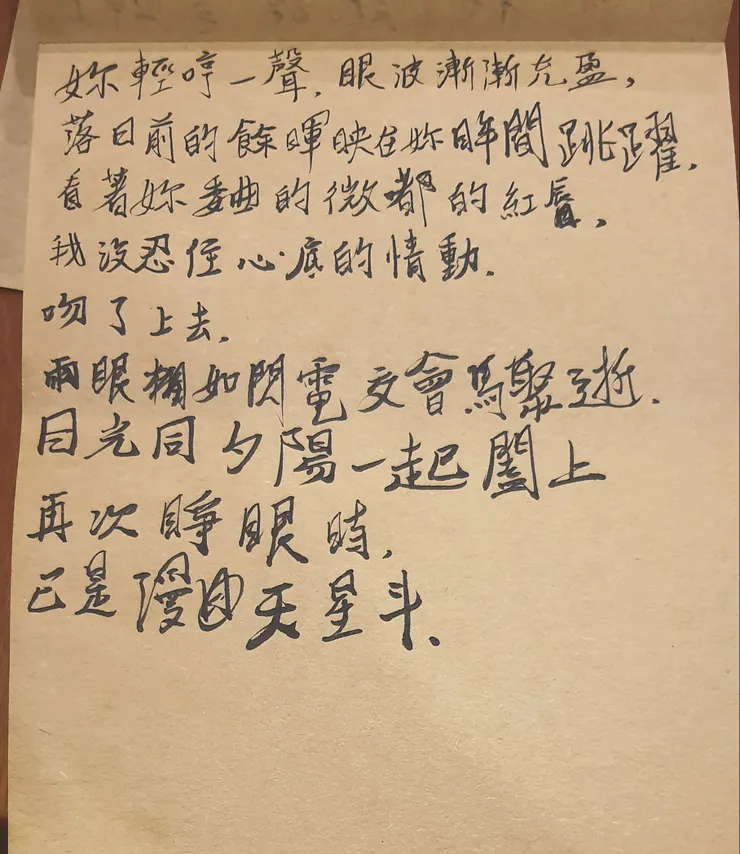 妳輕哼一聲，眼波漸漸充盈，
落日前的餘暉映在妳眸間跳躍，
看著妳委曲的微嘟的紅唇，
我沒忍住心底的情動，
吻了上去，
兩眼糊如閃電交會馬聚逝，
目光同夕陽一起闔上
再次睜眼時，
已是漫目天星斗．